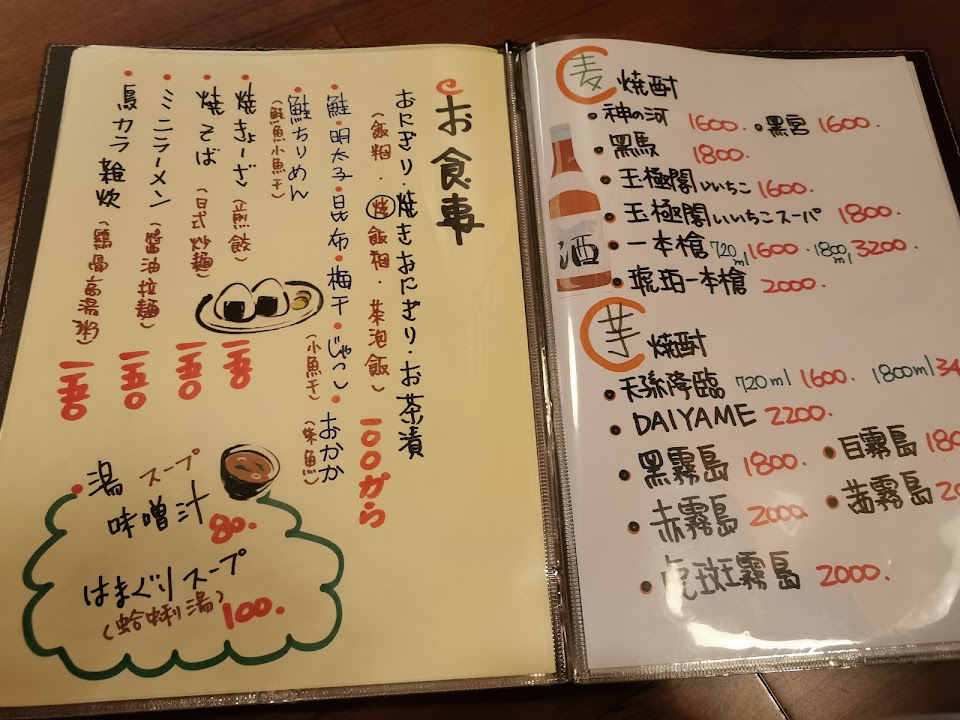 お食事
おにぎり・焼きおにぎり・お茶漬
(飯糰・焼飯糰・茶泡飯) 一〇〇から
鮭・明太子・昆布・梅干・じゃこ・おかか
(小魚干) (味魚)
鮭ちりめん
(鮭魚小魚干)
焼きょーざ (煎餃) 一五〇
焼そば (日式炒麺) 一五〇
ミニラーメン (醬油拉麺) 一五〇
鳥ガラ雑炊 (鶏骨高湯粥) 一五〇
湯 スープ
味噌汁 80.
はまぐりスープ
(蛤蜊湯) 100.
麦 焼酎
神の河 1600. 黒宮 1600.
黒馬 1800.
玉極閣いいちこ 1600.
玉極閣いいちこスーパ 1800.
一本槍 720ml 1600. 1800ml 3200.
琥珀一本槍 2000.
酒
芋 焼酎
天孫降臨 720ml 1600. 1800ml
DAIYAME 2200.
黒霧島 1800. 白霧島
赤霧島 2000. 茜霧島
虎斑霧島 2000.